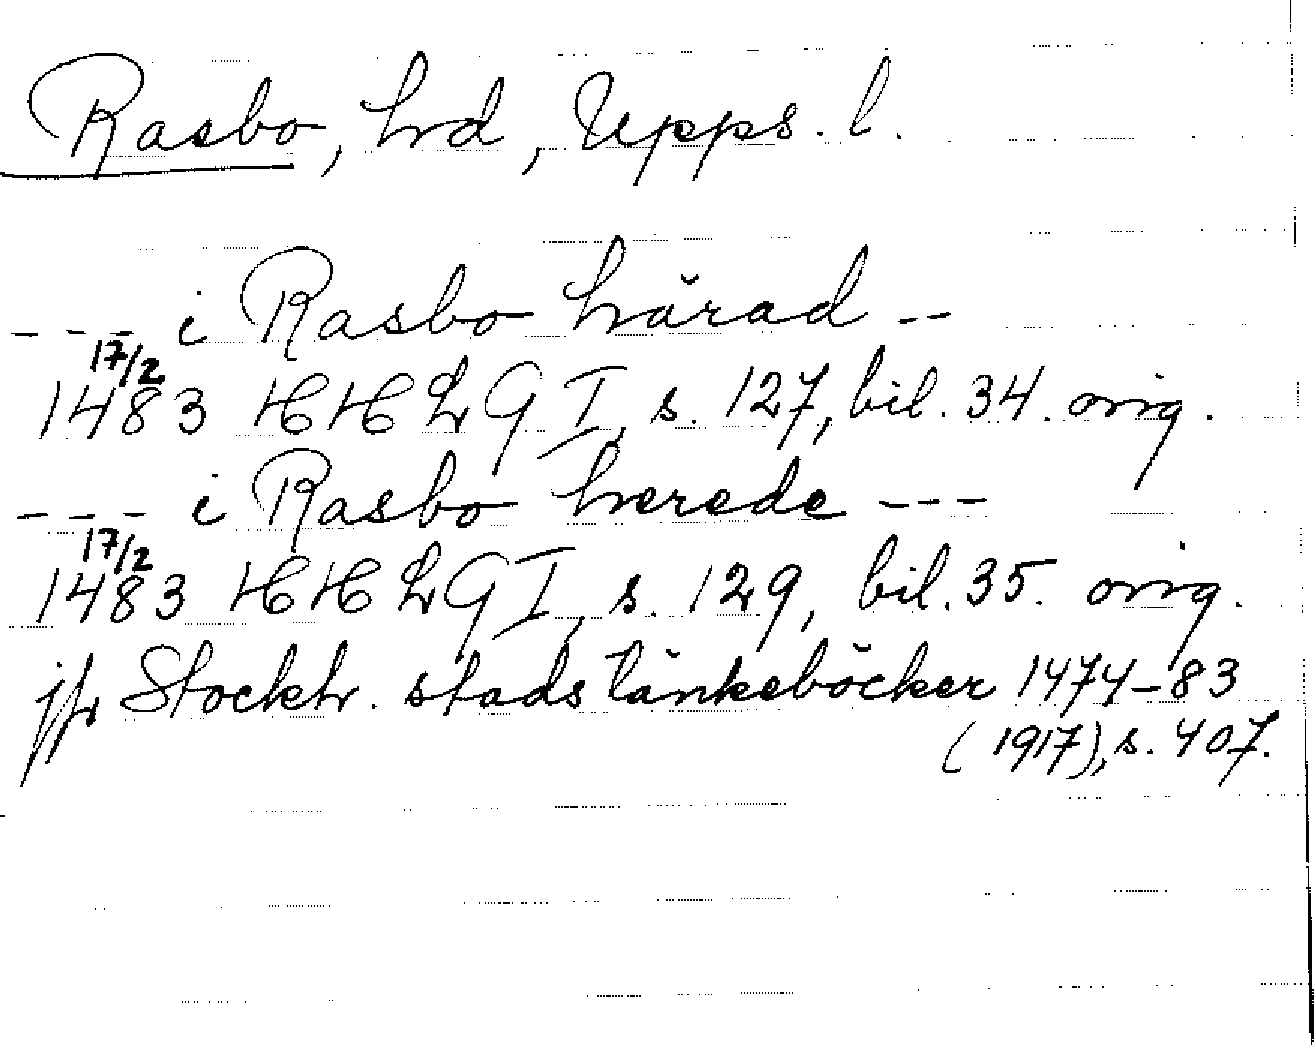 Rasbo, hrd, Upps. l.
--- i Rasbo härad --
17/2
1483 HHLG I, s. 127, bil. 34. orig.
--- i Rasbo herede ---
17/2
1483 HHLG I, s. 129, bil. 35. orig.
jfr Stockh. stads tänkeböcker 1474-83
(1917), s. 407.